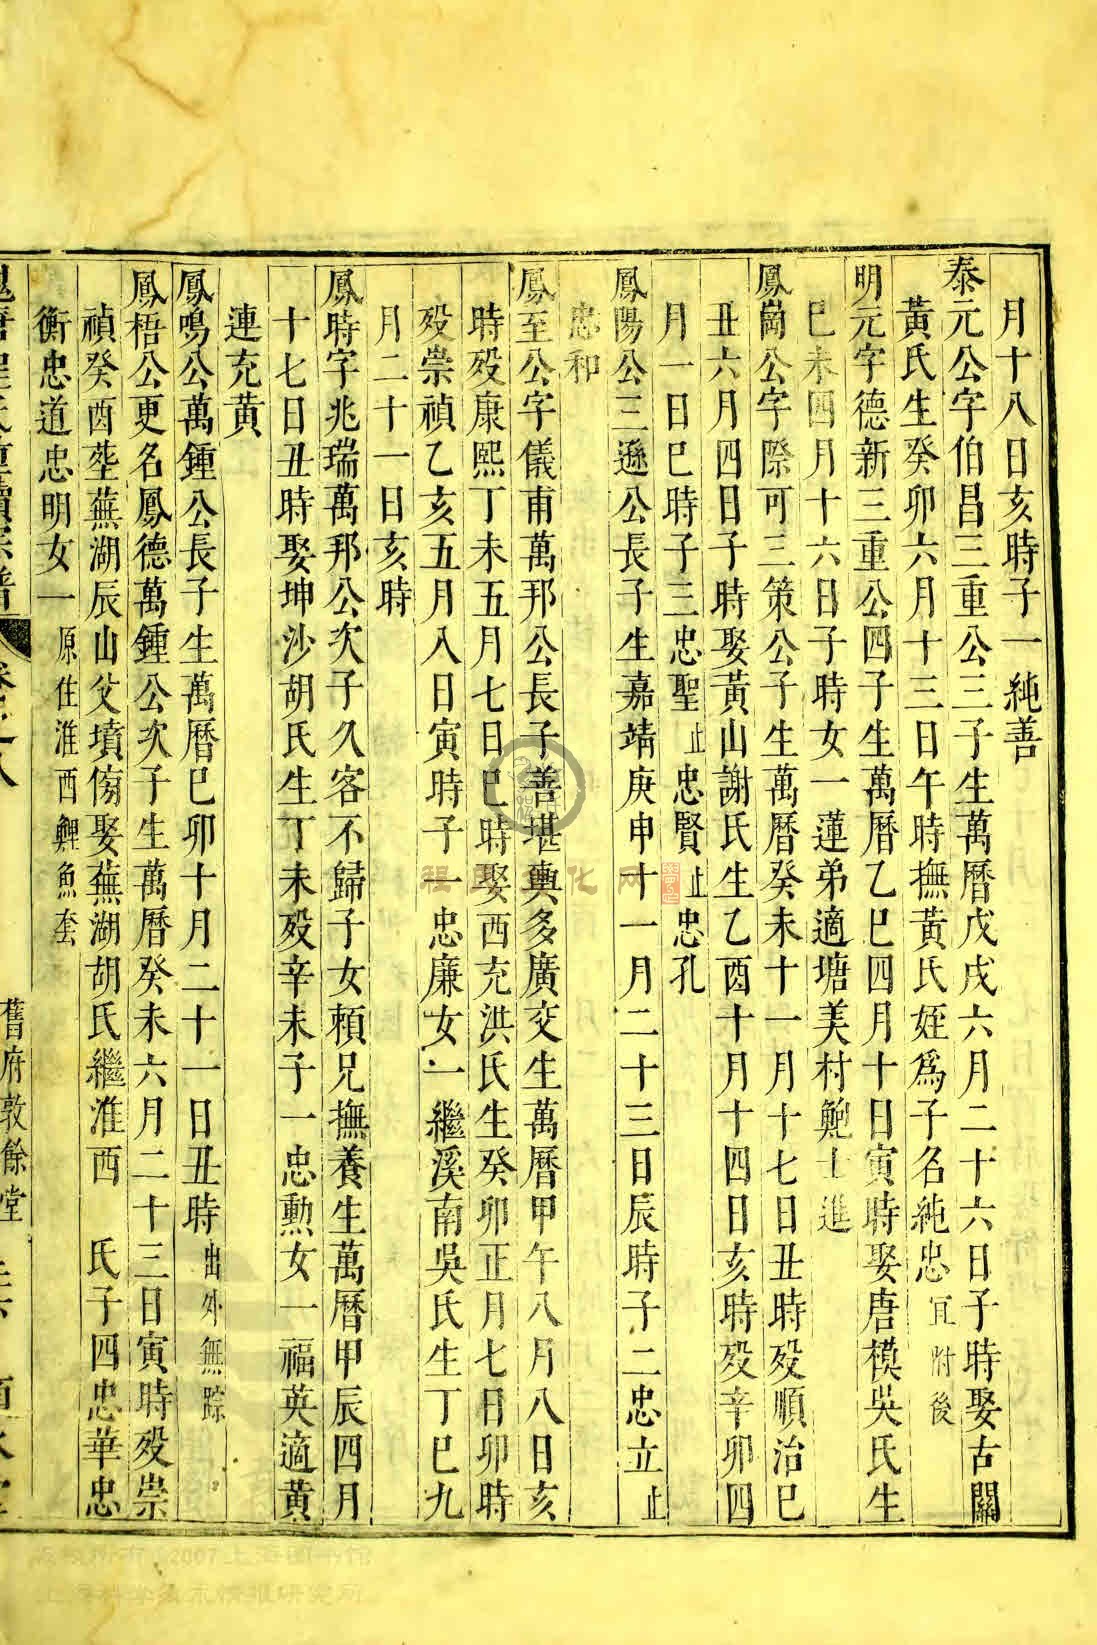 月十八日亥時子一純善
泰元公字伯昌三重公三子生萬曆戊戌六月二十六日子時娶古關
黃氏生癸卯六月十三日午時撫黃氏姪為子名純忠 宜附後
明元字德新三重公四子生萬曆乙巳四月十日寅時娶唐模吳氏生
巳未四月十六日子時女一蓮弟適塘美村鮑士進
鳳崗公字際可三策公子生萬曆癸未十一月十七日丑時歿順治巳
丑六月四日子時娶黃山謝氏生乙酉十月十四日亥時歿辛卯四
月一日巳時子三忠聖止忠賢止忠孔
鳳陽公三遜公長子生嘉靖庚申十一月二十三日辰時子二忠立止
忠和
鳳至公字儀甫萬邦公長子善堪輿多廣交生萬曆甲午八月八日亥
時歿康熙丁未五月七日巳時娶西充洪氏生癸卯正月七日卯時
歿崇禎乙亥五月八日寅時子一忠廉女一繼溪南吳氏生丁巳九
月二十一日亥時
鳳時字兆瑞萬邦公次子久客不歸子女賴兄撫養生萬曆甲辰四月
十七日丑時娶坤沙胡氏生丁未歿辛未子一忠勲女一福英適黃
連充黃
鳳鳴公萬鍾公長子生萬曆巳卯十月二十一日丑時出外無踪
鳳梧公更名鳳德萬鍾公次子生萬曆癸未六月二十三日寅時歿崇
禎癸酉塟蕪湖辰山父墳傍娶蕪湖胡氏繼淮西 氏子四忠華忠
衡忠道忠明女一 原住淮西鯉魚套
程氏 宗譜 卷之八 舊府敦餘堂
程 化网
版权所有 2007 上海图书馆
上海科学技术情报研究所